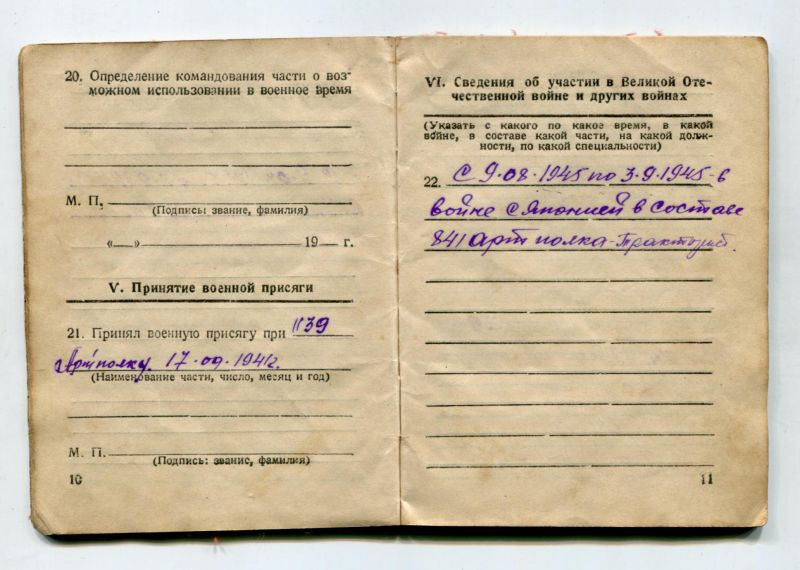 20. Определение командования части о воз-
можном использовании в военное время
М. П.
(Подпись: звание, фамилия)
«__» 19 г.
V. Принятие военной присяги
21. Принял военную присягу при 1139
Артполку 17·09·1941г.
(Наименование части, число, месяц и год)
М. П.
(Подпись: звание, фамилия)
10
VI. Сведения об участии в Великой Оте-
чественной войне и других войнах
(Указать с какого по какое время, в какой
войне, в составе какой части, на какой долж-
ности, по какой специальности)
22. С 9·08·1945 по 3·9·1945-в
войне с Японией в составе
841 арт полка-Тракторист.
11